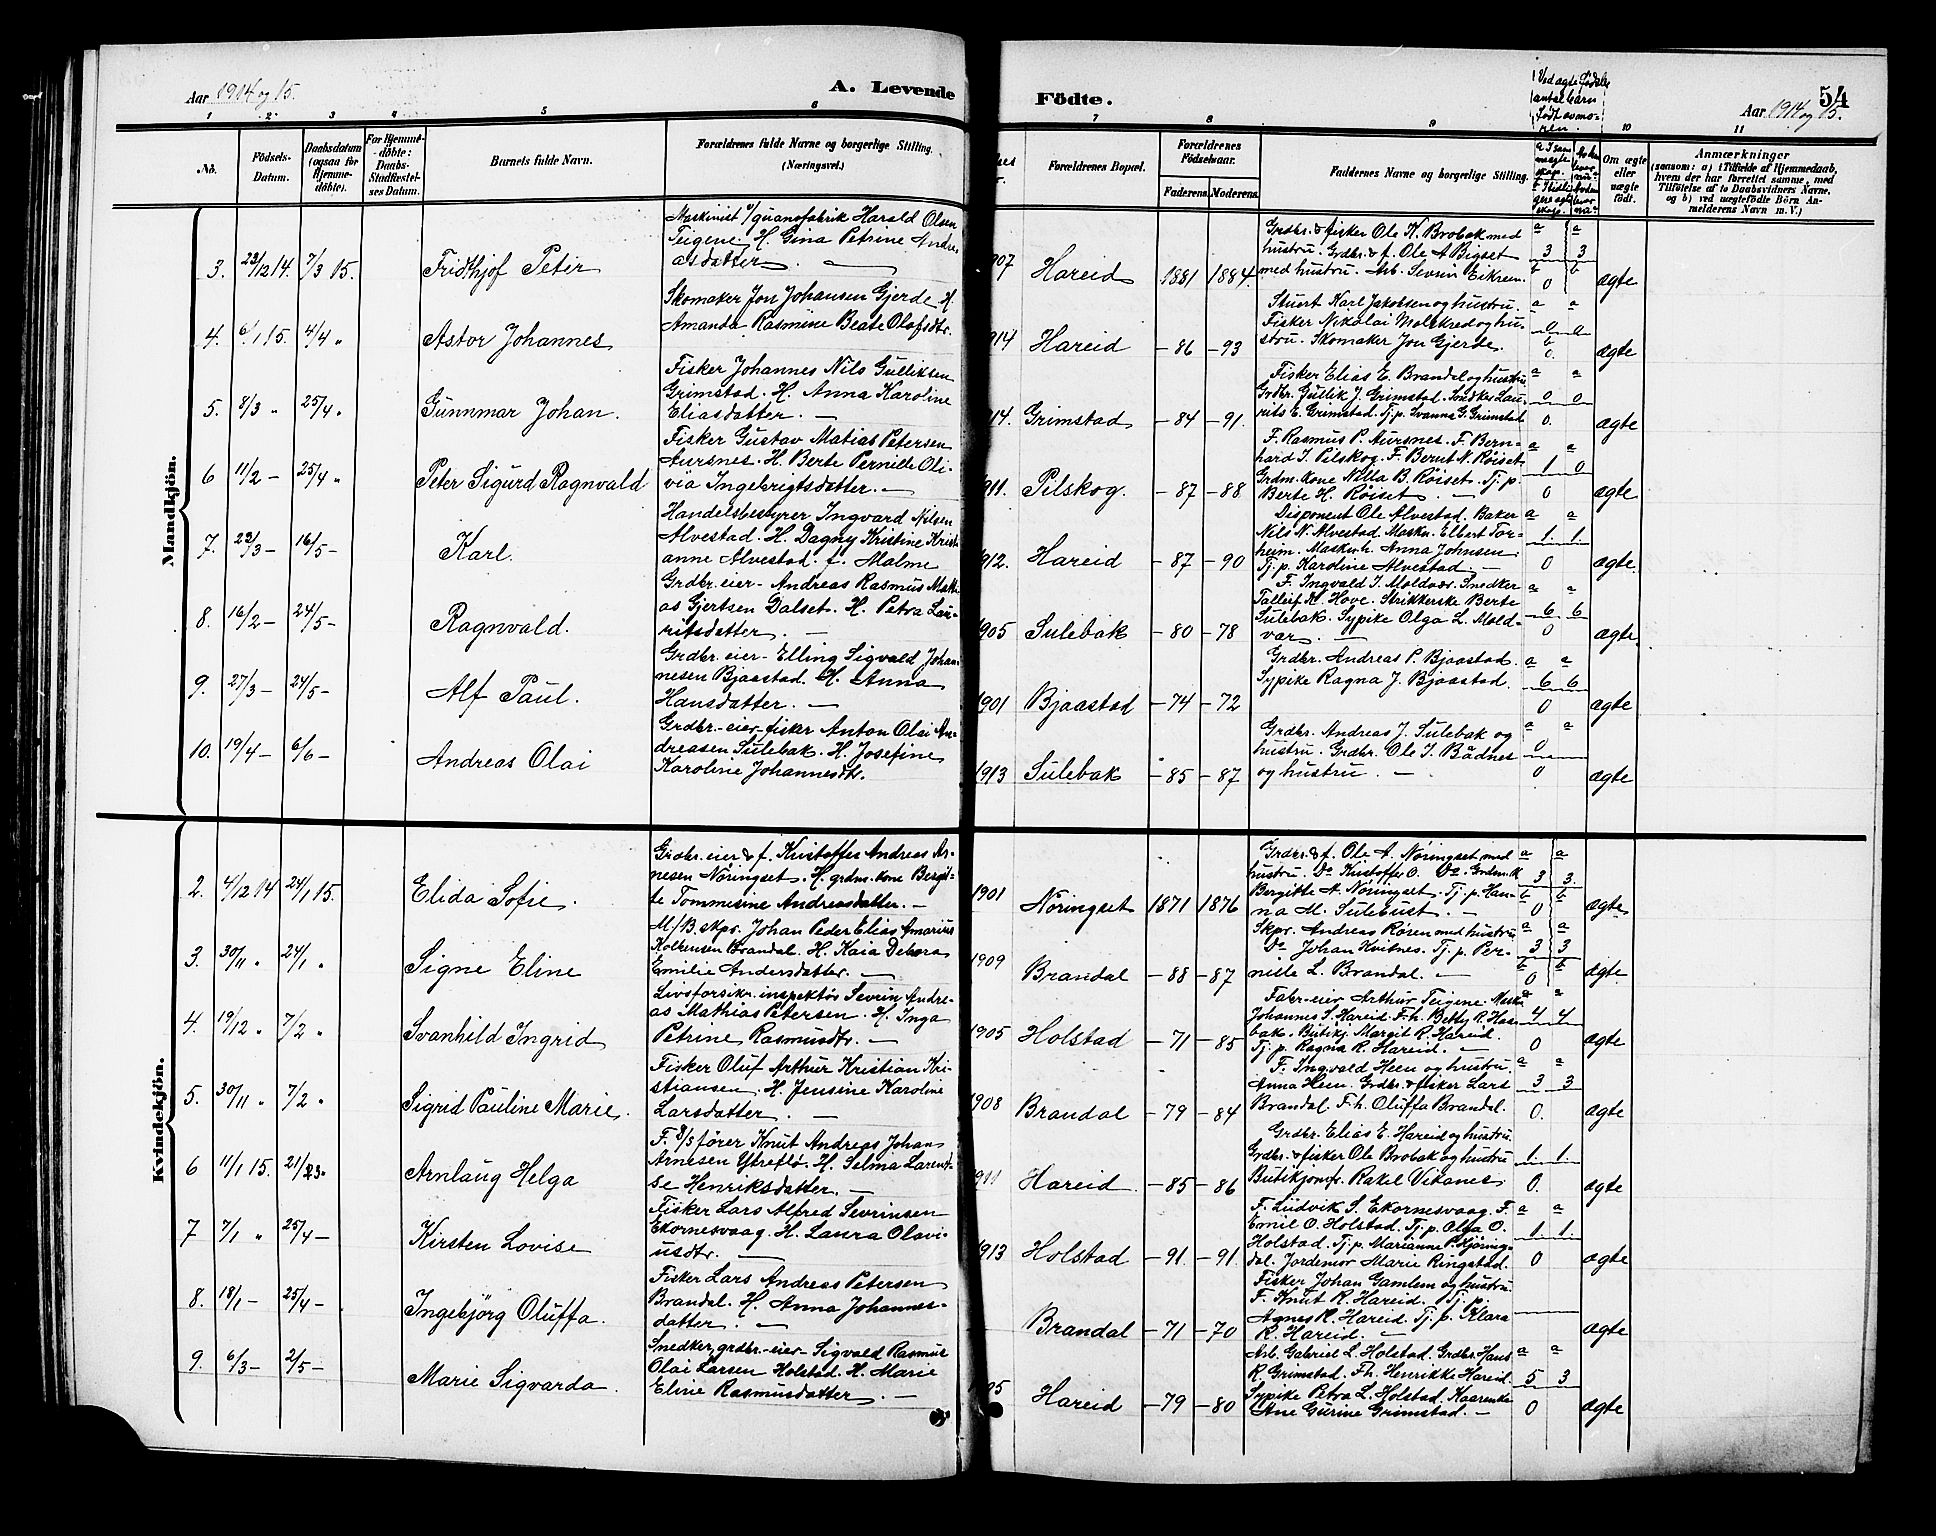 Aar 1914 og 15. A. Levende Födte. Aar 1914 og 15. 54
Ved ægte Födsler
antal barn
födt av mo-
ren.
1 2 3 4 5 6 7 8 9 10 11
No. Födsels-Datum. Daabsdatum (ogsaa for Hjemme-döbte). For Hjemme-döbte: Daabs-Stadfæstel-ses Datum. Barnets fulde Navn. Forældrenes fulde Navne og borgerlige Stilling. (Næringsvei.) Forældrenes Bopæl. Forældrenes Födselsaar. Faderens. Moderens. Faddernes Navne og borgerlige Stilling. Om ægte eller uægte födt. Anmærkninger
(saasom: a) i Tilfælde af Hjemmedaab, hvem der har forrettet samme, med Tilföielse af to Daabsvidners Navne, og b) ved uægtefödte Börn Anmelderens Navn m. V.)
Mandkjön.
3. 23/12 14. 7/3 15. Fridthjof Peter
Maskinist v/guanofabrik Harald Olsen
Teigene. H. Gina Petrine Andre-
asdatter. —
1907 Hareid 1881 1884.
Grdbr. & fisker Ole K. Brobak med
hustru. Grdbr. & f. Ole A Bigset
med hustru. Arb. Sevrin Eikrem
a 3 a 3 b 0 b ægte
4. 6/1 15. 4/4 " Astor Johannes
Skomaker Jon Johansen Gjerde. H.
Amanda Rasmine Beate Olafsdtr.
1914 Hareid -86 -93
Stuert Karl Jakobsen og hustru
Fisker Nikolai Molskred og hu-
stru. Skomaker Jon Gjerde.
a 0 a 0 b 0. ægte
5. 8/3 " 25/4 " Gunnmar Johan.
Fisker Johannes Nils Gulliksen
Grimstad. H. Anna Karoline
Eliasdatter. —
1914. Grimstad -84 -91.
Fisker Elias E. Brandal og hustru
Grdbr. Gullik J. Grimstad. Snedker Lau-
rits E. Grimstad. Tj. p. Svanna G. Grimstad
a 0 a 0 0. ægte
6 11/2 - 25/4 " Peter Sigurd Ragnvald
Fisker Gustav Matias Petersen
Aursnes. H. Berte Pernille Oli-
via Ingebrigtsdatter. —
1911. Pilskog. -87 -88
F. Rasmus P. Aursnes. F. Bern-
hard I. Pilskog. F. Berut N. Röiset
Grdm. kone Nilla B. Röiset. Tj. p
Berte H. Röiset. —
a 1 a 0 0 ægte
7. 22/3 - 16/5 - Karl.
Handelsbestyrer Ingvard Nilsen
Alvestad. H. Dagny Kristine Kristi-
anne Alvestad. f. Malme
1912. Hareid -87 -90
Disponent Ole Alvestad. Baker
Nils N. Alvestad. Maskn. Elbert Tor-
heim. Maskn.h. Anna Johnsen.
Tj. p. Karoline Alvestad. —
a 1. a 1 0 ægte.
8. 16/2 - 24/5 - Ragnvald.
Grdbr. eier - Andreas Rasmus Matti-
as Gjertsen Dalset. H. Petra Lau-
ritsdatter. —
1905 Sulebak -80 -78
F. Ingvald I. Moldvær. Snedker
Talleif K. Hove. Strikkerske Berte
Sulebak. Sypike Olga L. Mold-
vær. —
a 6 a 6 0 ægte
9. 27/3 - 24/5 - Alf Paul.
Grdbr. eier - Elling Sigvald Johan-
nesen Bjaastad. H. Anna
Hansdatter. —
1901 Bjaastad -74 -72
Grdbr. Andreas P. Bjaastad.
Sypike Ragna J. Bjaastad.
a 6 a 6 0 ægte
10. 19/4 - 6/6 - Andreas Olai
Grdbr.-eier-fisker Anton Olai An-
dreasen Sulebak. H. Josefine
Karoline Johannesdtr.
1913 Sulebak -85 -87
Grdbr. Andreas J. Sulebak og
hustru. Grdbr. Ole I. Bådnes
og hustru. —
a 0 a 0 ægte
Kvindekjön.
2. 4/12 14 24/1 15. Elida Sofie.
Grdbr. eier & f. Kristoffer Andreas Ar-
nesen Nöringset. H. grdm. kone Bergit-
te Tommesine Andreasdatter. —
1901 Nöringset 1871 1876
Grdbr. & f. Ole A. Nöringset med
hustru. Do Kristoffer O. Do. Grdm. K.
Bergitte A. Nöringset. Tj. p. Han-
na M. Sulebust. —
a 3 a 3. b 0 b ægte
3. 30/11 " 24/1 " Signe Eline
M/B. skpr. Johan Peder Elias Amarius
Kolbensen Brandal. H. Kaia Debora
Emilie Andersdatter. —
1909 Brandal -88 -87
Skpr. Andreas Rören med hustru
Do Johan Kvitnes. Tj. p. Per-
nille L. Brandal. —
a 3 a 3 b 0 b ægte
4. 19/12 " 7/2 " Svanhild Ingrid
Livsforsikr. inspektör Sevrin Andre-
as Mathias Petersen. H. Inga
Petrine Rasmusdtr. —
1905 Holstad -71 -85
Fabr-eier Arthur Teigene. Maskn
Johannes S. Hareid. F.h. Betty R. Has-
bak. Butikj. Margit R. Hareid.
Tj. p. Ragna R. Hareid. —
a 4 a 4 0 ægte
5. 30/11 " 7/2 " Sigrid Pauline Marie.
Fisker Oluf Arthur Kristian Kri-
stiansen. H. Jensine Karoline
Larsdatter. —
1908 Brandal -79 -84
F. Ingvald Heen og hustru
Anna Heen. Grdbr. & fisker Lars
Brandal. F.h. Oluffa Brandal.
a 3 a 3 0. ægte
6 11/1 15. 21/23 " Arnlaug Helga
F. D/S förer Knut Andreas Johan
Arnesen Ytreflö. H. Selma Larent-
se Henriksdatter. —
1911 Hareid. -85 -86
Grdbr. Elias E. Hareid og hustru.
Grdbr. & fisker Ole Brobak og hustru
Butikjomfr. Rakel Vikanes
1. 1. 0. ægte
7 7/1 " 25/4 - Kirsten Lovise
Fisker Lars Alfred Sevrinsen
Ekornesvaag. H. Laura Olavi-
usdtr. —
1913 Holstad -91 -91.
F. Ludvik S. Ekornesvaag. F.
Emil O. Holstad. Tj. p. Olga O.
Holstad. Tj. p. Marianne P. Hjöring-
dal. Jordemor Marie Ringstad.
a 1. a 1. 0 ægte
8. 18/1 - 25/4 - Ingebjörg Oluffa.
Fisker Lars Andreas Petersen
Brandal. H. Anna Johannes-
datter. —
Brandal -71 -70
Fisker Johan Gamlem og hustru
F. Knut R. Hareid. Tj. p.
Agnes R. Hareid. Tj. p. Klara
R. Hareid. —
ægte
9. 6/3 - 2/5 - Marie Sigvarda.
Snedker, grdbr.-eier- Sigvald Rasmus
Olai Larsen Holstad. H. Marie
Eline Rasmusdatter. —
1905 Hareid -79 -80
Arb. Gabriel L. Holstad. Grdbr. Hans
R. Grimstad. F.h. Henrikke Hareid.
Sypike Petra L. Holstad. Kaarenke
Ane Gurine Grimstad. —
a 5 a 3 0 ægte